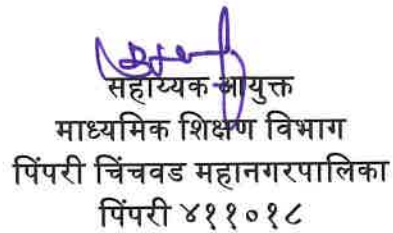 सहाय्यक आयुक्त
माध्यमिक शिक्षण विभाग
पिंपरी चिंचवड महानगरपालिका
पिंपरी ४११०१८